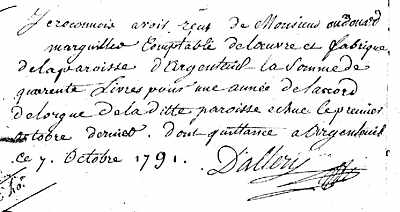 Je reconnois avoir reçu de Monsieur oudouard
marguillier Comptable de l'oeuvre et fabrique
de la paroisse d'Argenteuil la Somme de
quarente Livres pour une année de l'accord
de l'orgue de la ditte paroisse echue le premier
octobre dernier. Dont quittance a Argenteuil
ce 7. Octobre 1791. Dallery